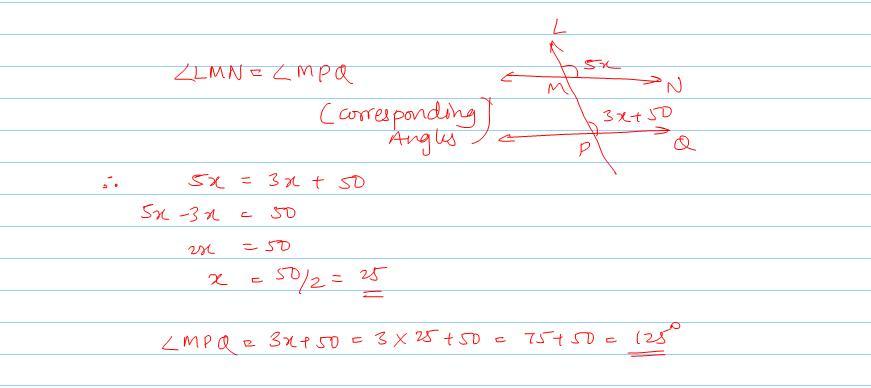 L
∠LMN = ∠MPQ
5x
M
N
(corresponding
Angles)
3x+50
P
Q
∴ 5x = 3x + 50
5x -3x = 50
2x = 50
x = 50/2 = 25
∠MPQ = 3x+50 = 3×25+50 = 75+50 = 125°